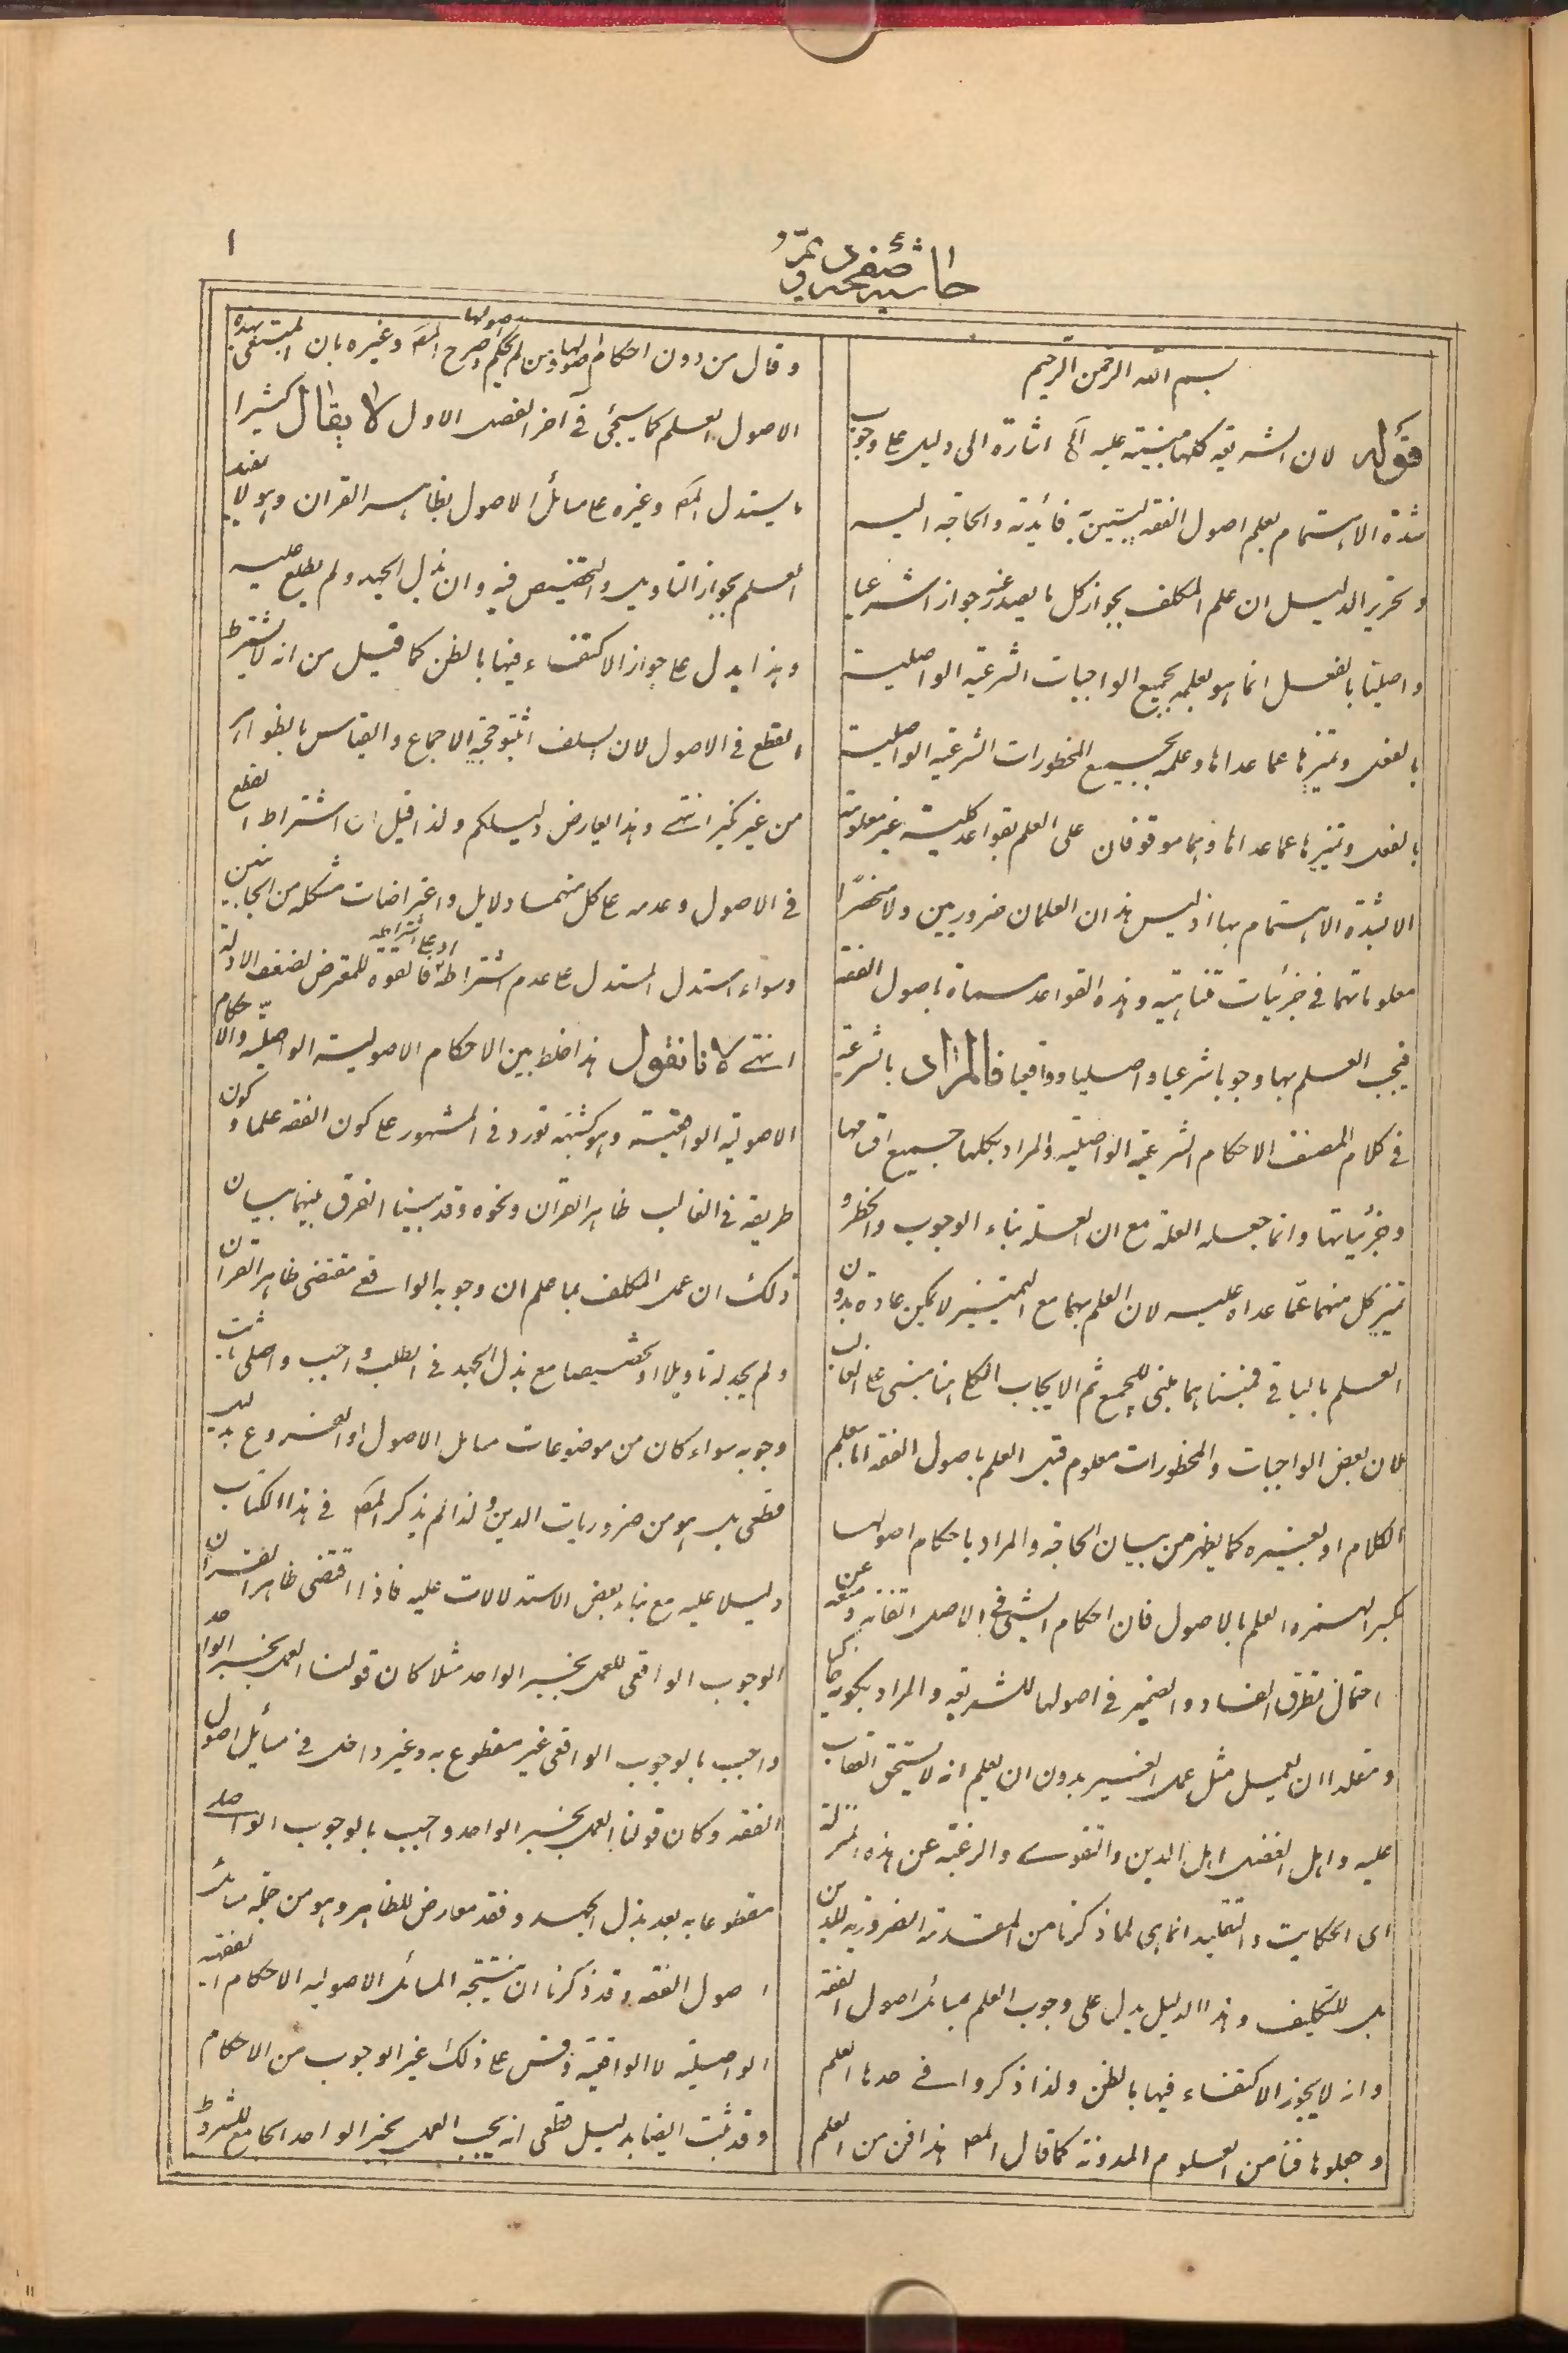 ١
حاشية صفحه نمرة
بسم الله الرحمن الرحيم
قوله لان الشريعة كلها مبنية عليه الخ اشارة الى دليل على وجوب
شدة الاهتمام بعلم اصول الفقه ليتبين فائدته والحاجة اليه
وتحرير الدليل ان علم المكلف بجواز كل ما يصدر عنه جوازا شرعيا
واصليا بالفعل انما هو بعلمه بجميع الواجبات الشرعية الواصلية
بالفعل وتميزها عما عداها وعلمه بجميع المحظورات الشرعية الواصلية
بالفعل وتميزها عما عداها وهما موقوفان على العلم بقواعد كلية غير معلومة
الا بشدة الاهتمام بها اذ ليس هذان العلمان ضروريين ولا منحصرا
معلوماتهما في جزئيات متناهية وهذه القواعد مسماة باصول الفقه
فيجب العلم بها وجوبا شرعيا واصليا وواقعيا فالمراد بالشرعية
في كلام المصنف الاحكام الشرعية الواصلية والمراد بكلها جميع اقسامها
وجزئياتها وانما جعله العلة مع ان العلة بناء الوجوب والحظر و
تميز كل منهما عما عداه عليه لان العلم بهما مع التميز لا يمكن عادة بدون
العلم بالباقي فمبناهما مبنى للجميع ثم الايجاب الكلي هنا مبنى على الغالب
لان بعض الواجبات والمحظورات معلوم قبل العلم باصول الفقه اما بعلم
الكلام او بغيره كما يظهر من بيان الحاجة والمراد باحكام اصولها
بكسر الهمزه العلم بالاصول فان احكام الشيء في الاصل اتقانه ومنعه عن
احتمال تطرق الفساد والضمير في اصولها للشريعة والمراد بكونه حاكيا
ومقلدا ان يعمل مثل عمل الغير بدون ان يعلم انه لا يستحق العقاب
عليه واهل الفضل اهل الدين والتقوى والرغبة عن هذه المنزلة
اى الحكاية والتقليد انما هى لما ذكرنا من المقدمة الضرورية للدين
بل للتكليف وهذا الدليل يدل على وجوب العلم بمسائل اصول الفقه
وانه لا يجوز الاكتفاء فيها بالظن ولذا ذكروا في حدها العلم
وجعلوها فنا من العلوم المدونة كما قال المص هذا فن من العلم
وقال من دون احكام اصولها ومن لم يحكم اصولها وصرح المص وغيره بان المبتغى بهذه
الاصول العلم كما سيجئ في آخر الفصل الاول لا يقال كثيرا
ما يستدل المص وغيره على مسائل الاصول بظاهر القران وهو لا يفيد
العلم بجواز التاويل والتخصيص فيه وان بذل الجهد ولم يطلع عليه
وهذا يدل على جواز الاكتفاء فيها بالظن كما قيل من انه لا يشترط
القطع في الاصول لان السلف اثبتوا حجية الاجماع والقياس بالظواهر
من غير نكير انتهى وهذا يعارض دليلكم ولذا قيل ان اشتراط القطع
في الاصول وعدمه على كل منهما دلايل واعتراضات مشكله من الجانبين
وسواء استدل المستدل على عدم اشتراطه او على اشتراطه فالقوه للمعترض لضعف الادلة
انتهى لانا نقول هذا خلط بين الاحكام الاصولية الواصلية والاحكام
الاصولية الواقعية وهو كشبهة تورد في المشهور على كون الفقه علما وكون
طريقه في الغالب ظاهر القران ونحوه وقد بينا الفرق بينهما بيان
ذلك ان عمل المكلف بما علم ان وجوبه الواقعي مقتضى ظاهر القران
ولم يجد له تاويلا او تخصيصا مع بذل الجهد في الطلب واجب واصلى ثابت
وجوبه سواء كان من موضوعات مسايل الاصول او الفروع بدليل
قطعى بل هو من ضروريات الدين ولذا لم يذكر المص في هذا الكتاب
دليلا عليه مع بناء بعض الاستدلالات عليه فاذا اقتضى ظاهر القران
الوجوب الواقعى للعمل بخبر الواحد مثلا كان قولنا العمل بخبر الواحد
واجب بالوجوب الواقعى غير مقطوع به وغير داخل في مسايل اصول
الفقه وكان قولنا العمل بخبر الواحد واجب بالوجوب الواصلى
مقطوعا به بعد بذل الجهد وفقد معارض للظاهر وهو من جملة مسائل
اصول الفقه وقد ذكرنا ان نتيجة المسائل الاصوليه الاحكام الفقهية
الواصلية لا الواقعية وقس على ذلك غير الوجوب من الاحكام
وقد ثبت ايضا بدليل قطعى انه يجب العمل بخبر الواحد الجامع للشروط